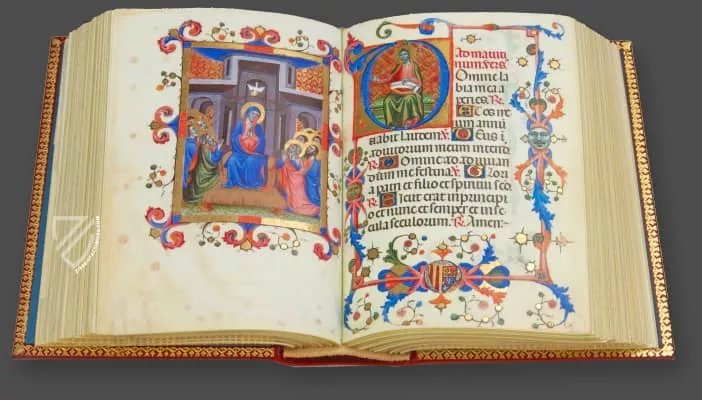 Domine la
bia mea a
peries. R
Et os me
um annū
tiabit laudem. V Deus ī
adiutorium meum intende
R Domine ad adiuuan
dum me festina. V Glori
a patri et filio et spiritui sco
R Sicut erat in principi
o et nunc et semper et in se
cula seculorum. R Amen.